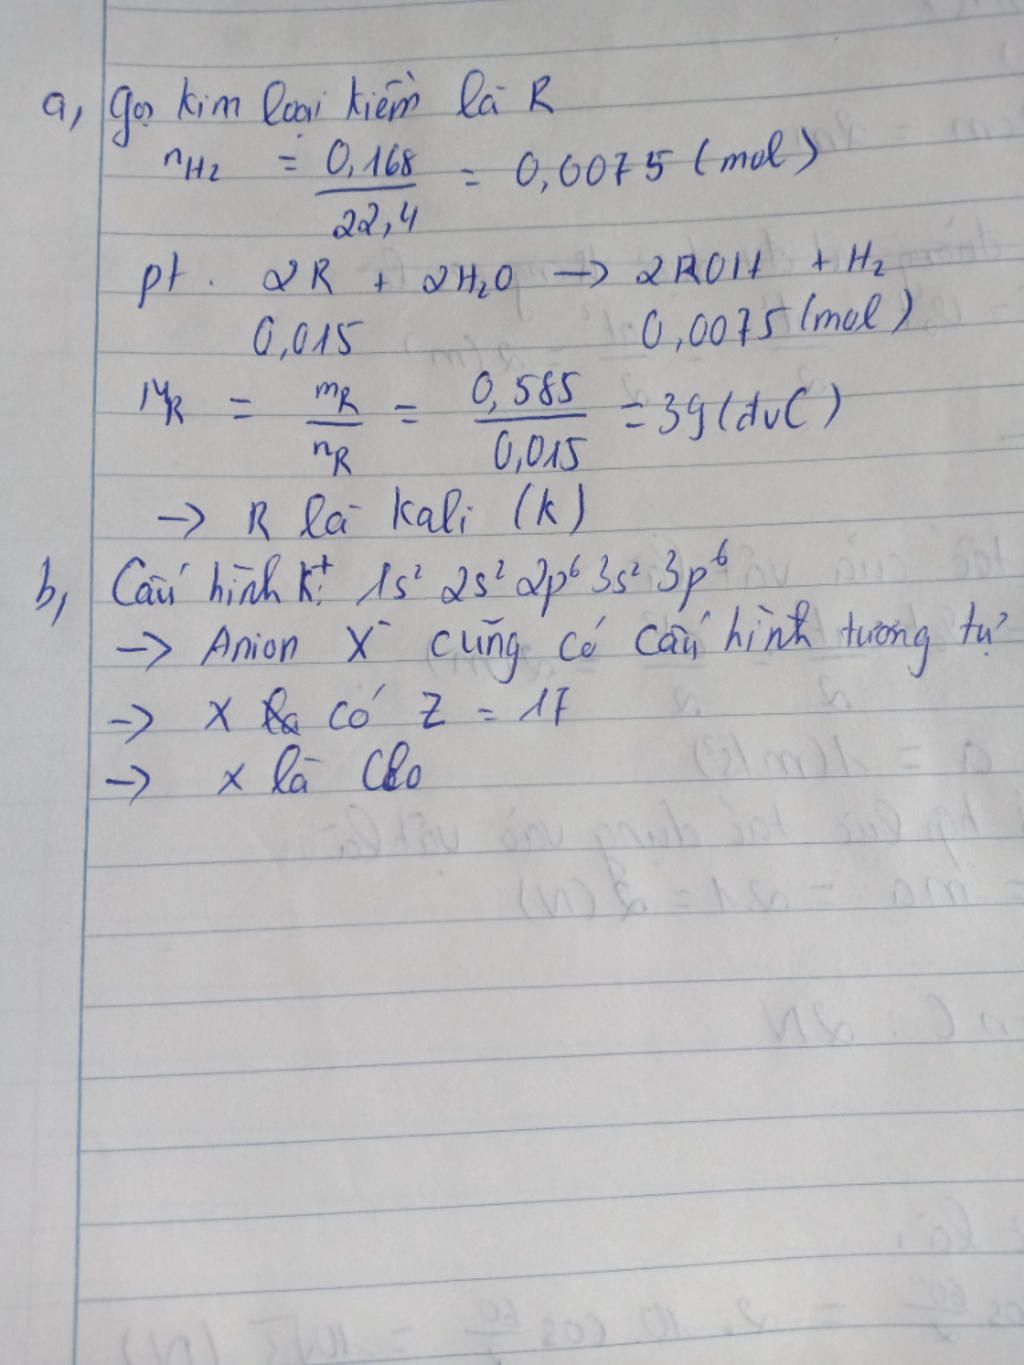 a, gọi kim loại kiềm là R
nH2 = 0,168 / 22,4 = 0,0075 (mol)
pt . 2R + 2H2O → 2ROH + H2
0,015 0,0075 (mol)
MR = mR / nR = 0,585 / 0,015 = 39 (đvC)
→ R là kali (k)
b, Cấu hình K+: 1s² 2s² 2p⁶ 3s² 3p⁶
→ Anion X⁻ cũng có cấu hình tương tự
→ X có Z = 17
→ X là Clo